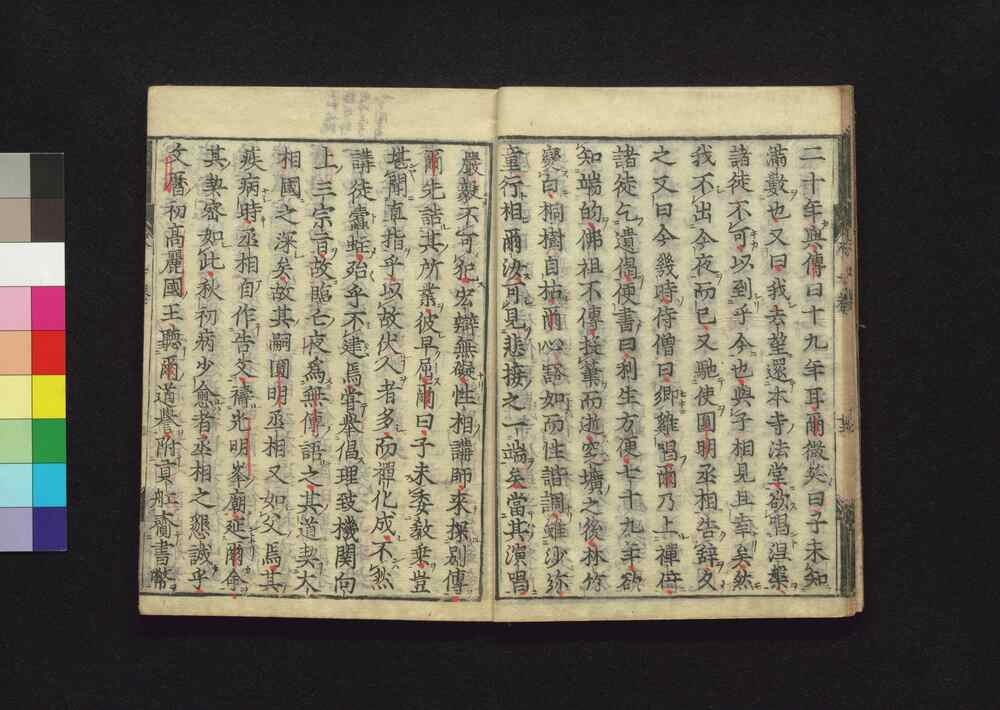 二十年與傳曰十九年耳爾微笑曰子未知
滿數也又曰我去望還本寺法堂欲唱涅槃
諸徒不可以到乎今也與子相見且幸矣然
我不出今夜而已又馳使圓明丞相告辭夂
之又曰今幾時侍僧曰鄉雞唱爾乃上禪牀
諸徒乞遺偈便書曰利生方便七十九年欲
知端的佛祖不傳投筆而逝空壙之後林介
變白桐樹自枯爾心豁如而性諧調雖沙弥
童行相爾汝可見悲接之一端矣當其演唱
嚴毅不可犯宏辯無礙性相講師來探別傳
爾先詰其所業彼早屈爾曰子未委敎乗豈
堪聞直指乎以故伏久者多而禪化成不然
講徒蠹蛀殆乎不建焉嘗舉倡理致機關向
上三宗旨故臨亡夜爲無傳語之其道契大
相國之深矣故其嗣圓明丞相又如父焉其
疾病時丞相自作告文禱光明峯廟延爾命
其勢密如此秋初病少愈者丞相之懇誠乎
文曆初高麗國王聽爾道譽附貢舡上齎書幣